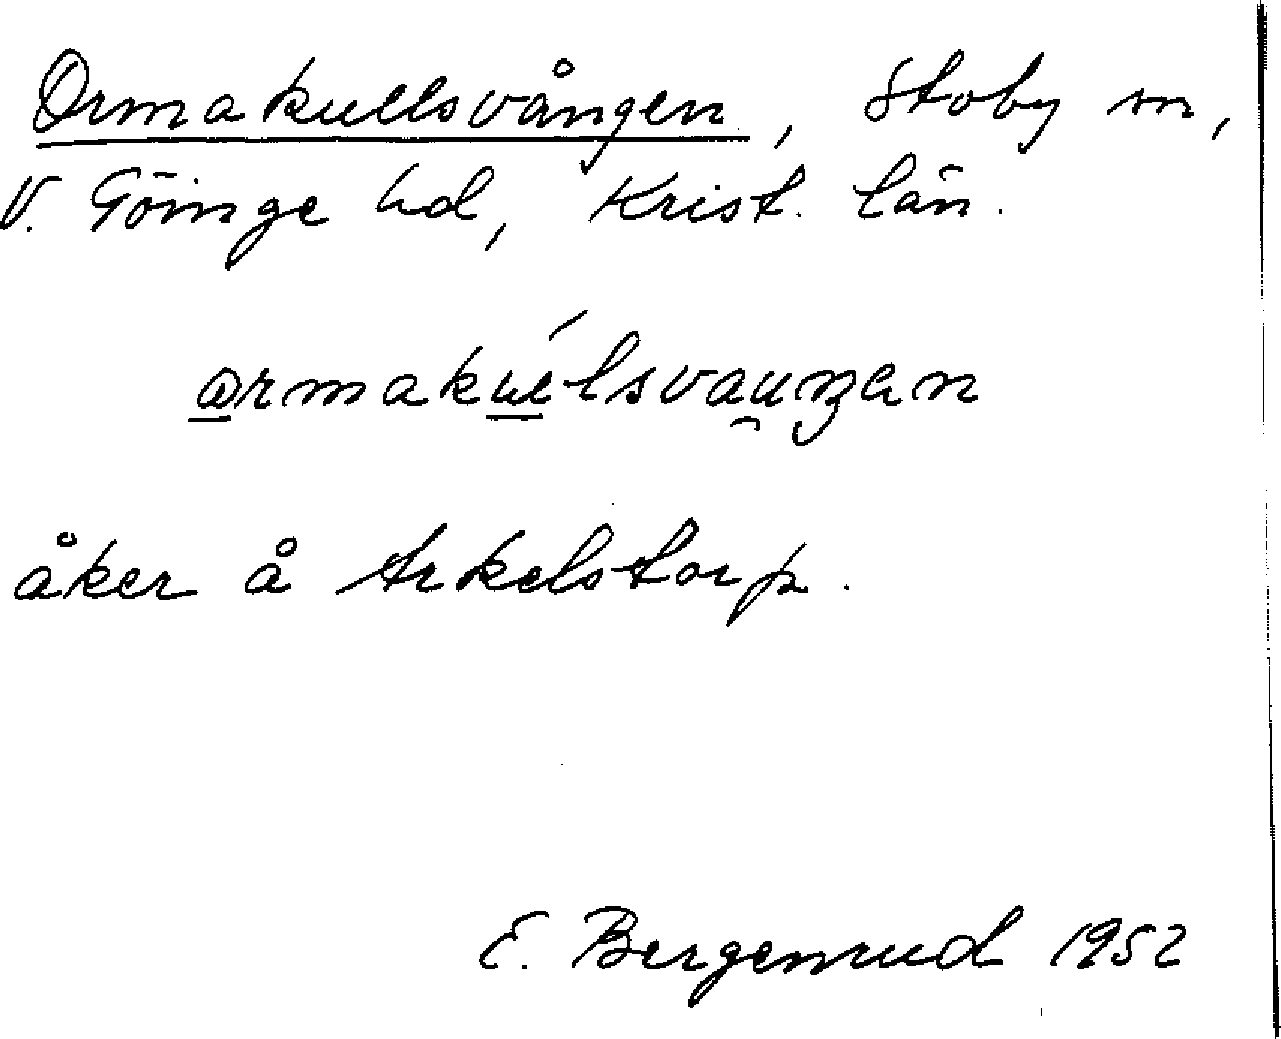 Ormakullsvången, Stoby sn,
V. Göinge hd, Krist. län.
åker å Arkelstorp.
E. Bergenrud 1952